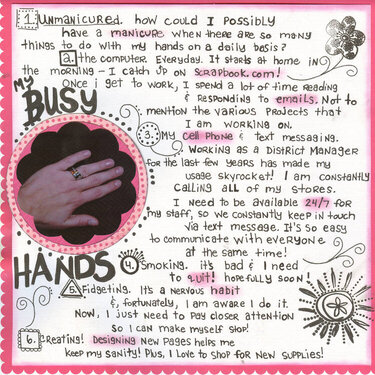 1. Unmanicured. how could I possibly
have a manicure when there are so many
things to do with my hands on a daily basis?
2. the computer. Everyday. It starts at home in
the morning - I catch up on scrapbook.com!
Once i get to work, I spend a lot of time reading
& responding to emails. Not to
mention the various projects that
I am working on.
3. My cell phone & text messaging.
Working as a District Manager
for the last few years has made my
usage skyrocket! I am constantly
calling all of my stores.
I need to be available 24/7 for
my staff, so we constantly keep in touch
via text message. It's so easy
to communicate with everyone
at the same time!
MY
BUSY
HANDS
4. Smoking. it's bad & I need
to quit! hopefully soon!
5. Fidgeting. It's a nervous habit
&, fortunately, I am aware I do it.
Now, I just need to pay closer attention
so I can make myself stop!
6. Creating! Designing new pages helps me
keep my sanity! Plus, I love to shop for new supplies!